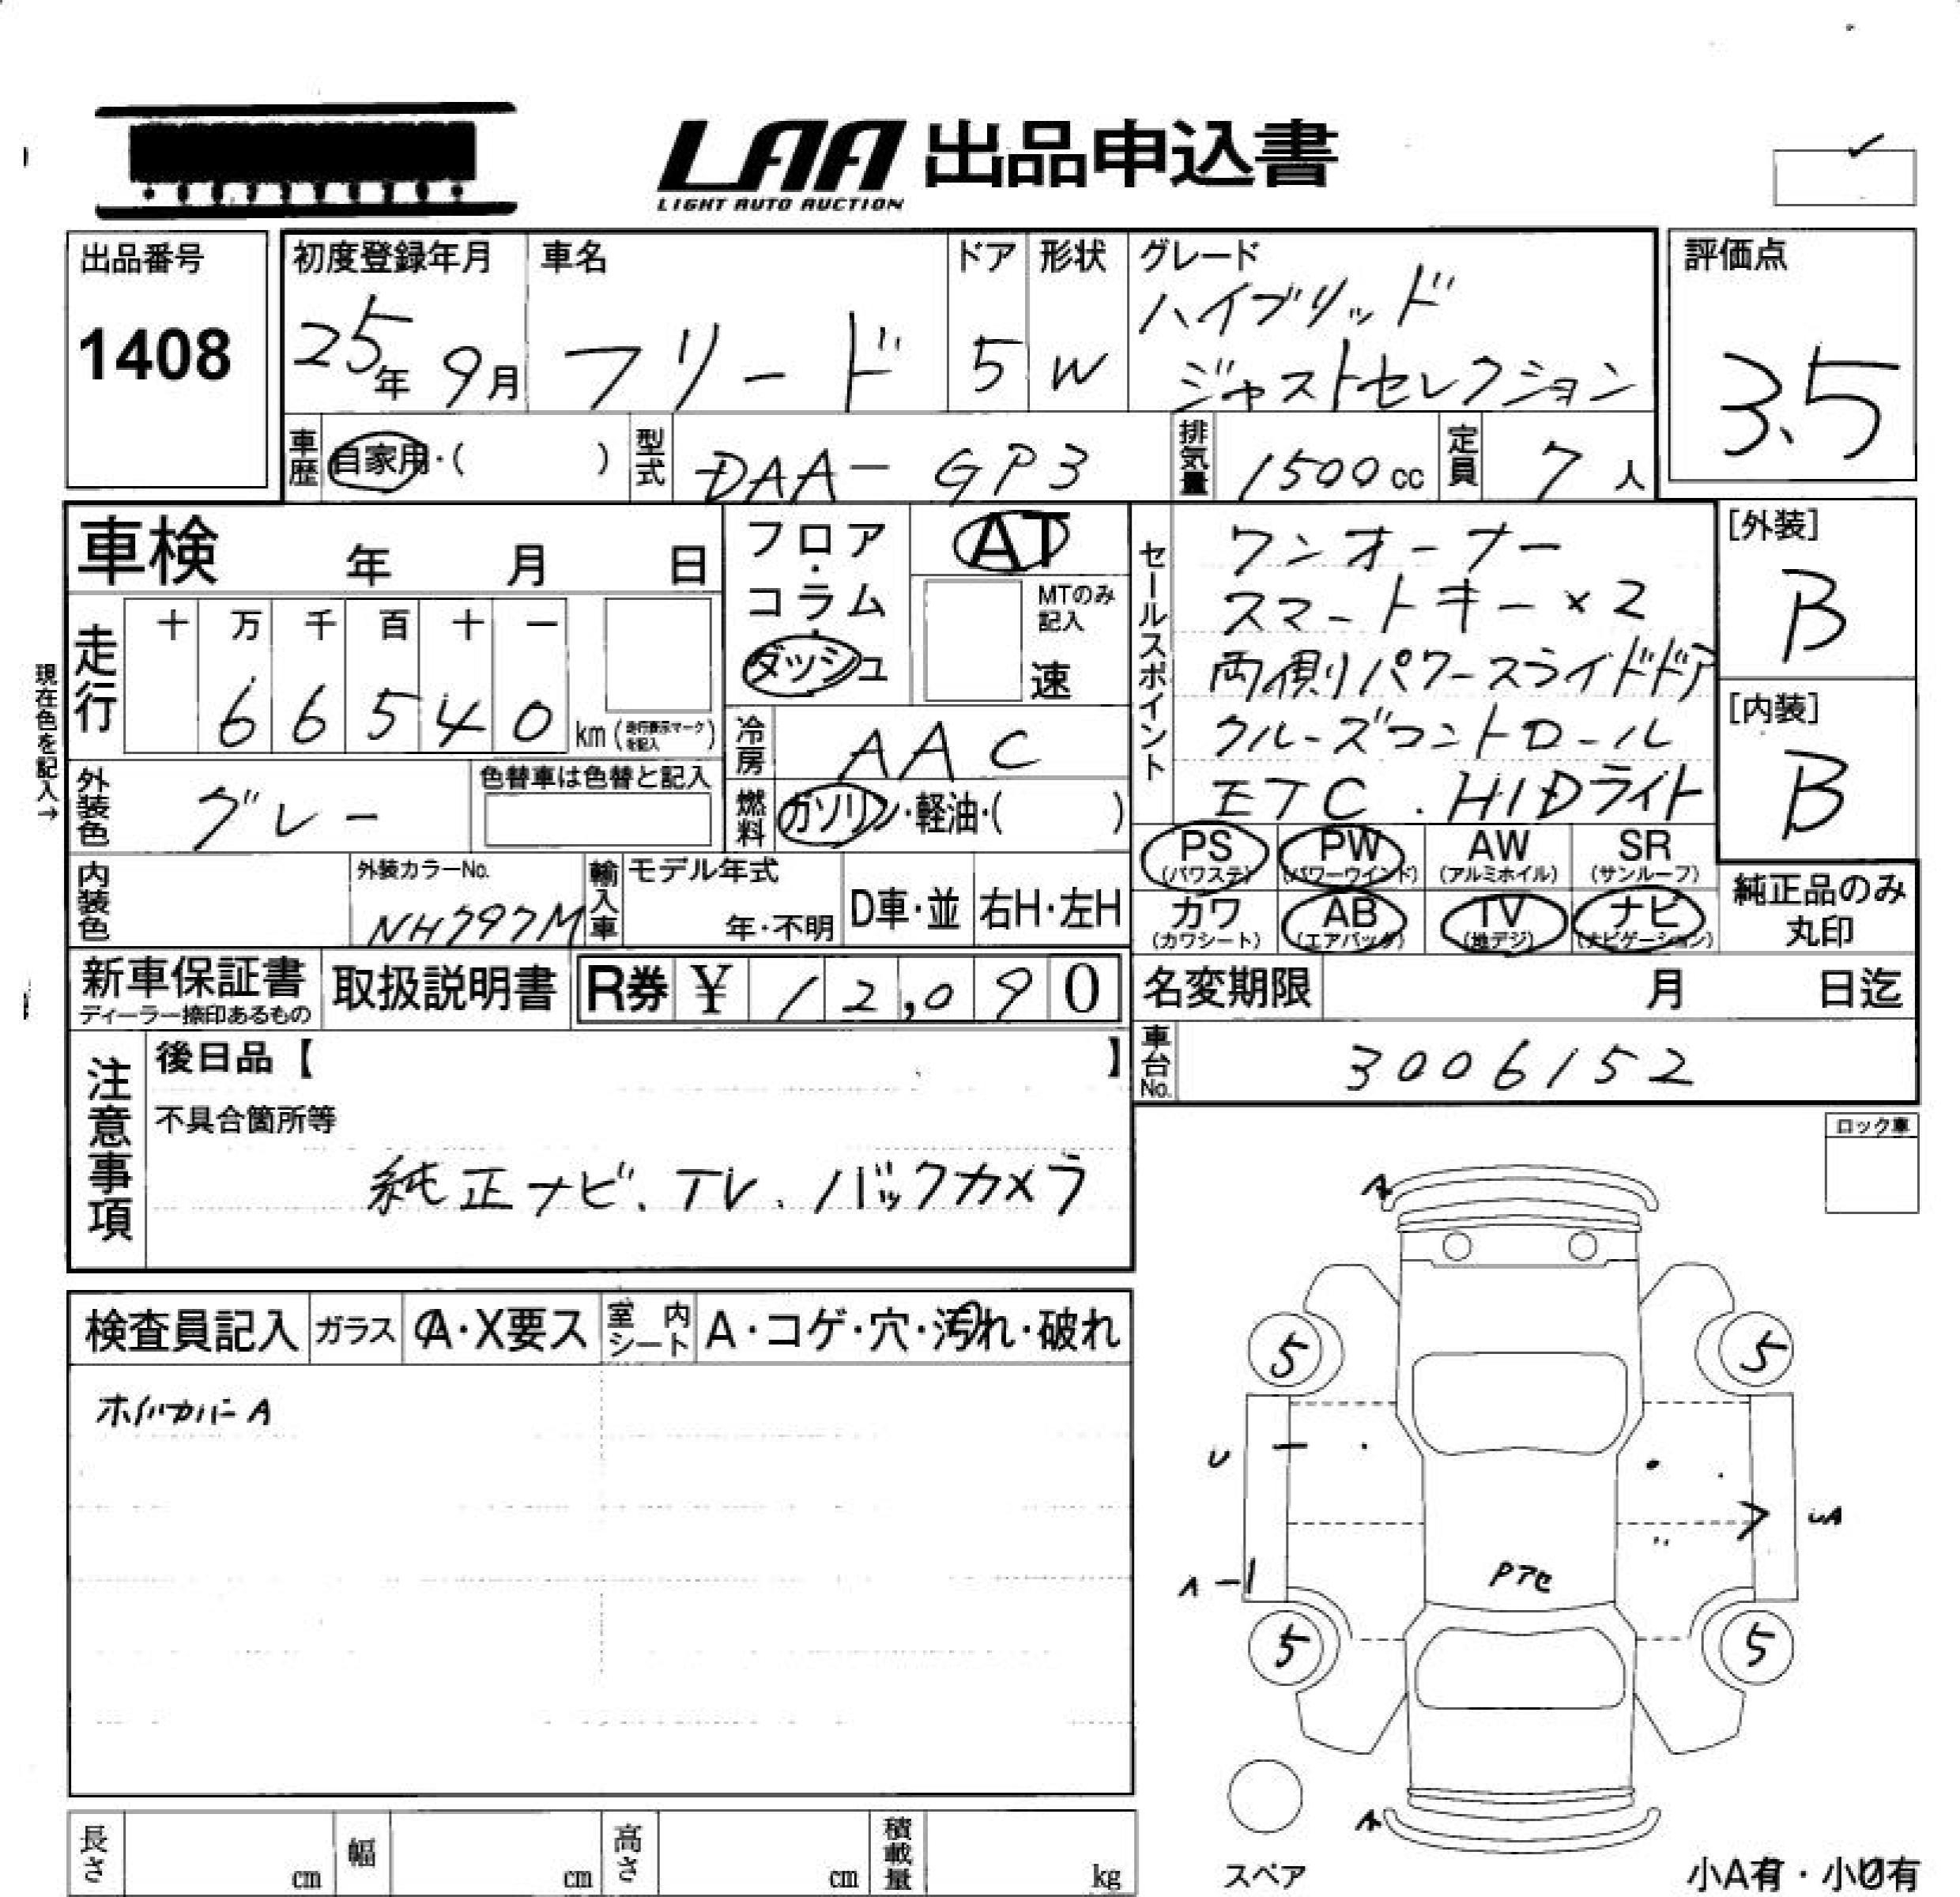 LAA 出品申込書
LIGHT AUTO AUCTION
出品番号
1408
初度登録年月
25年 9月
車名
フリード
ドア
5
形状
W
グレード
ハイブリッド
ジャストセレクション
評価点
3.5
車歴 自家用・( )
型式 DAA-GP3
排気量 1500cc
定員 7人
車検 年 月 日
フロア・コラム・ダッシュ
AT
MTのみ記入
速
セールスポイント
ワンオーナー
スマートキー×2
両側パワースライドドア
クルーズコントロール
ETC.HIDライト
[外装]
B
[内装]
B
現在色を記入→
走行 十 万 千 百 十 一
6 6 5 4 0 km (走行表示マークを記入)
冷房 AAC
外装色 グレー
色替車は色替と記入
燃料 ガソリン・軽油・( )
PS (パワステ)
PW (パワーウインド)
AW (アルミホイル)
SR (サンルーフ)
カワ (カワシート)
AB (エアバッグ)
TV (地デジ)
ナビ (ナビゲーション)
純正品のみ丸印
内装色
外装カラーNo.
NH797M
輸入車
モデル年式
年・不明
D車・並
右H・左H
新車保証書
ディーラー捺印あるもの
取扱説明書
R券 ¥ 12,090
名変期限 月 日迄
車台No. 3006152
注意事項
後日品【 】
不具合箇所等
純正ナビ、TV、バックカメラ
ロック車
検査員記入
ガラス A・X要ス
室内シート A・コゲ・穴・汚れ・破れ
ホイルカバーA
A
5
5
U
UA
A
PTセ
5
5
A
スペア
小A有・小U有
長さ cm
幅 cm
高さ cm
積載量 kg